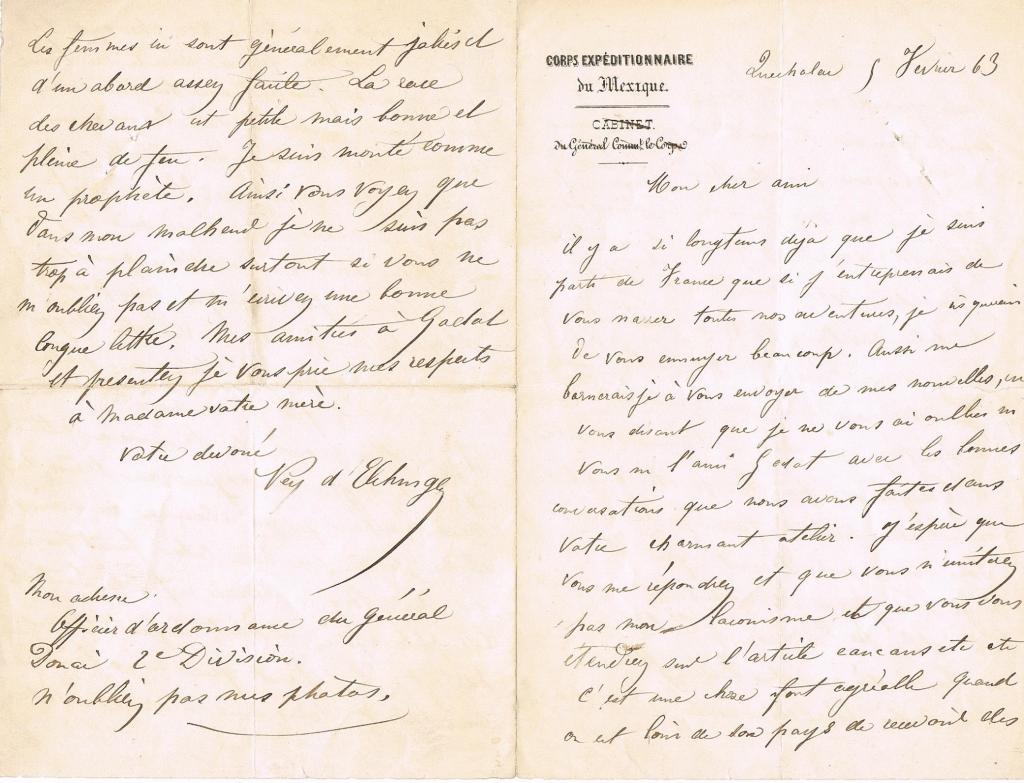 CORPS EXPÉDITIONNAIRE
du Mexique.
CABINET.
du Général Commt. le Corps
Quecholac 5 Fevrier 63
Mon cher ami
il y a si longtems déja que je suis
parti de France que si j'entreprenais de
vous narrer toutes nos aventures, je risquerais
de vous ennuyer beaucoup. Aussi me
bornerais je à vous envoyer de mes nouvelles, en
vous disant que je ne vous ai oublies ni
vous ni l'ami Gadat avec les bonnes
conversations que nous avons faites dans
votre charmant atelier. J'espère que
vous me répondrez et que vous n'imiterez
pas mon laconisme et que vous vous
étendrez sur l'article cancans etc etc
C'est une chose fort agréable quand
on est loin de son pays de recevoir des
Les femmes ici sont généralement jolies et
d'un abord assez facile. La race
des chevaux est petite mais bonne et
pleine de feu. Je suis monté comme
un prophète. Ainsi vous voyez que
dans mon malheur je ne suis pas
trop à plaindre surtout si vous ne
m'oubliez pas et m'écrivez une bonne
longue lettre. Mes amitiés à Gadat
et presentez je vous prie mes respects
à Madame votre mère.
votre devoué
Ney d'Elchingen
Mon adresse.
Officier d'ordonnance du Général
Douai 2e Division.
n'oubliez pas mes photos.